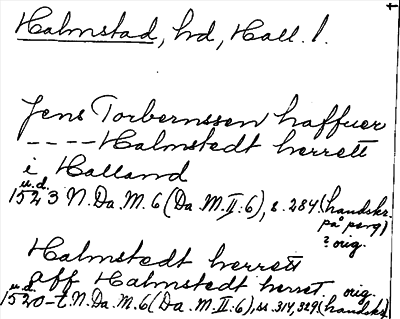 Halmstad, hd, Hall. l.
Jens Torbernssen haffuer
---- Halmstedt herrett
i Halland
u.d.
1523 N.Da.M.6 (Da.M.II:6), s. 284. (handskr.
på perg)
? orig.
Halmstedt herrett
aff Halmstedt herret orig.
u.d.
1520-t. N.Da.M.6 (Da.M.II:6), ss. 314, 329. (handskr)